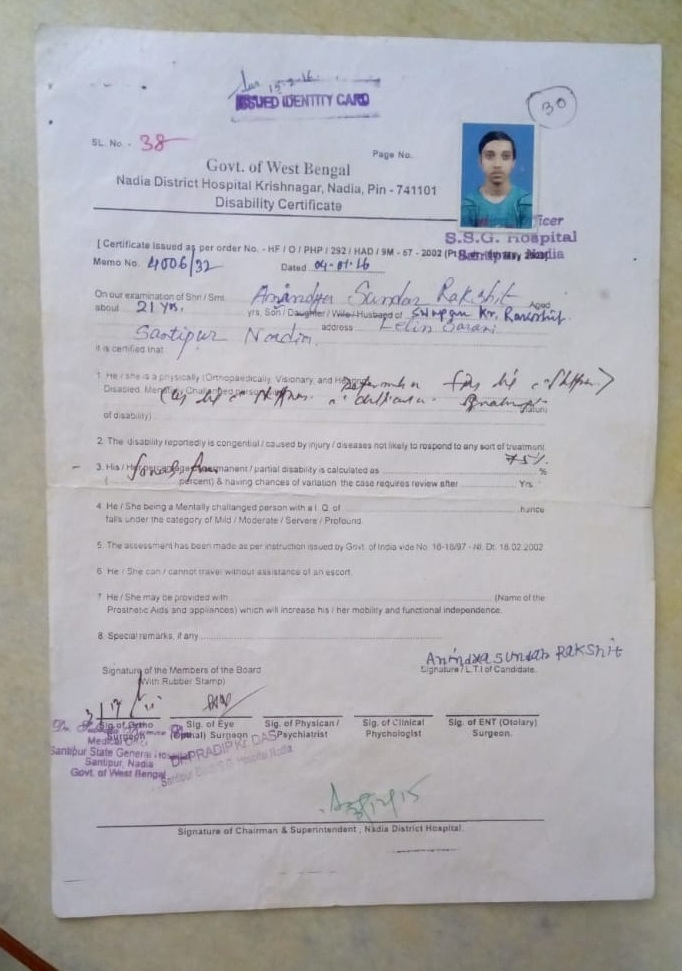 15-2-16
ISSUED IDENTITY CARD
30
SL. No. - 38
Page No.
Govt. of West Bengal
Nadia District Hospital Krishnagar, Nadia, Pin - 741101
Disability Certificate
ficer
S.S.G. Hospital
Nadia
[ Certificate Issued as per order No. - HF / O / PHP / 292 / HAD / 9M - 67 - 2002
Memo No. 4006/32 Dated 04-01-16
On our examination of Shri / Smt. Anindya Sundar Rakshit Aged
about 21 yrs. yrs, Son / Daughter / Wife / Husband of Swapan Kr. Rakshit.
Santipur Nadia. address Lelin Sarani
it is certified that
1. He / she is a physically (Orthopaedically, Visionary, and
Disabled, Mentally Challenged
of disability)
2. The disability reportedly is congential / caused by injury / diseases not likely to respond to any sort of treatment
3. His / Her permanent / partial disability is calculated as 75% %
( percent) & having chances of variation the case requires review after Yrs
4. He / She being a Mentally challanged person with a I. Q. of hence
falls under the category of Mild / Moderate / Servere / Profound.
5. The assessment has been made as per instruction issued by Govt. of India vide No. 16-18/97 - NI. Dt. 18.02.2002
6. He / She can / cannot travel without assistance of an escort.
7. He / She may be provided with (Name of the
Prosthetic Aids and appliances) which will increase his / her mobility and functional independence.
8. Special remarks, if any
Anindya Sundar Rakshit
Signature of the Members of the Board
Signature / L.T.I of Candidate.
(With Rubber Stamp)
Sig. of Ortho Surgeon
Sig. of Eye Surgeon
Sig. of Physican / Psychiatrist
Sig. of Clinical Phychologist
Sig. of ENT (Otolary) Surgeon.
Dr.
Medical
Santipur State General Hospital
Santipur, Nadia
Govt. of West Bengal
Dr. PRADIP Kr. DAS
Santipur S.G. Hospital Nadia
Signature of Chairman & Superintendent , Nadia District Hospital.